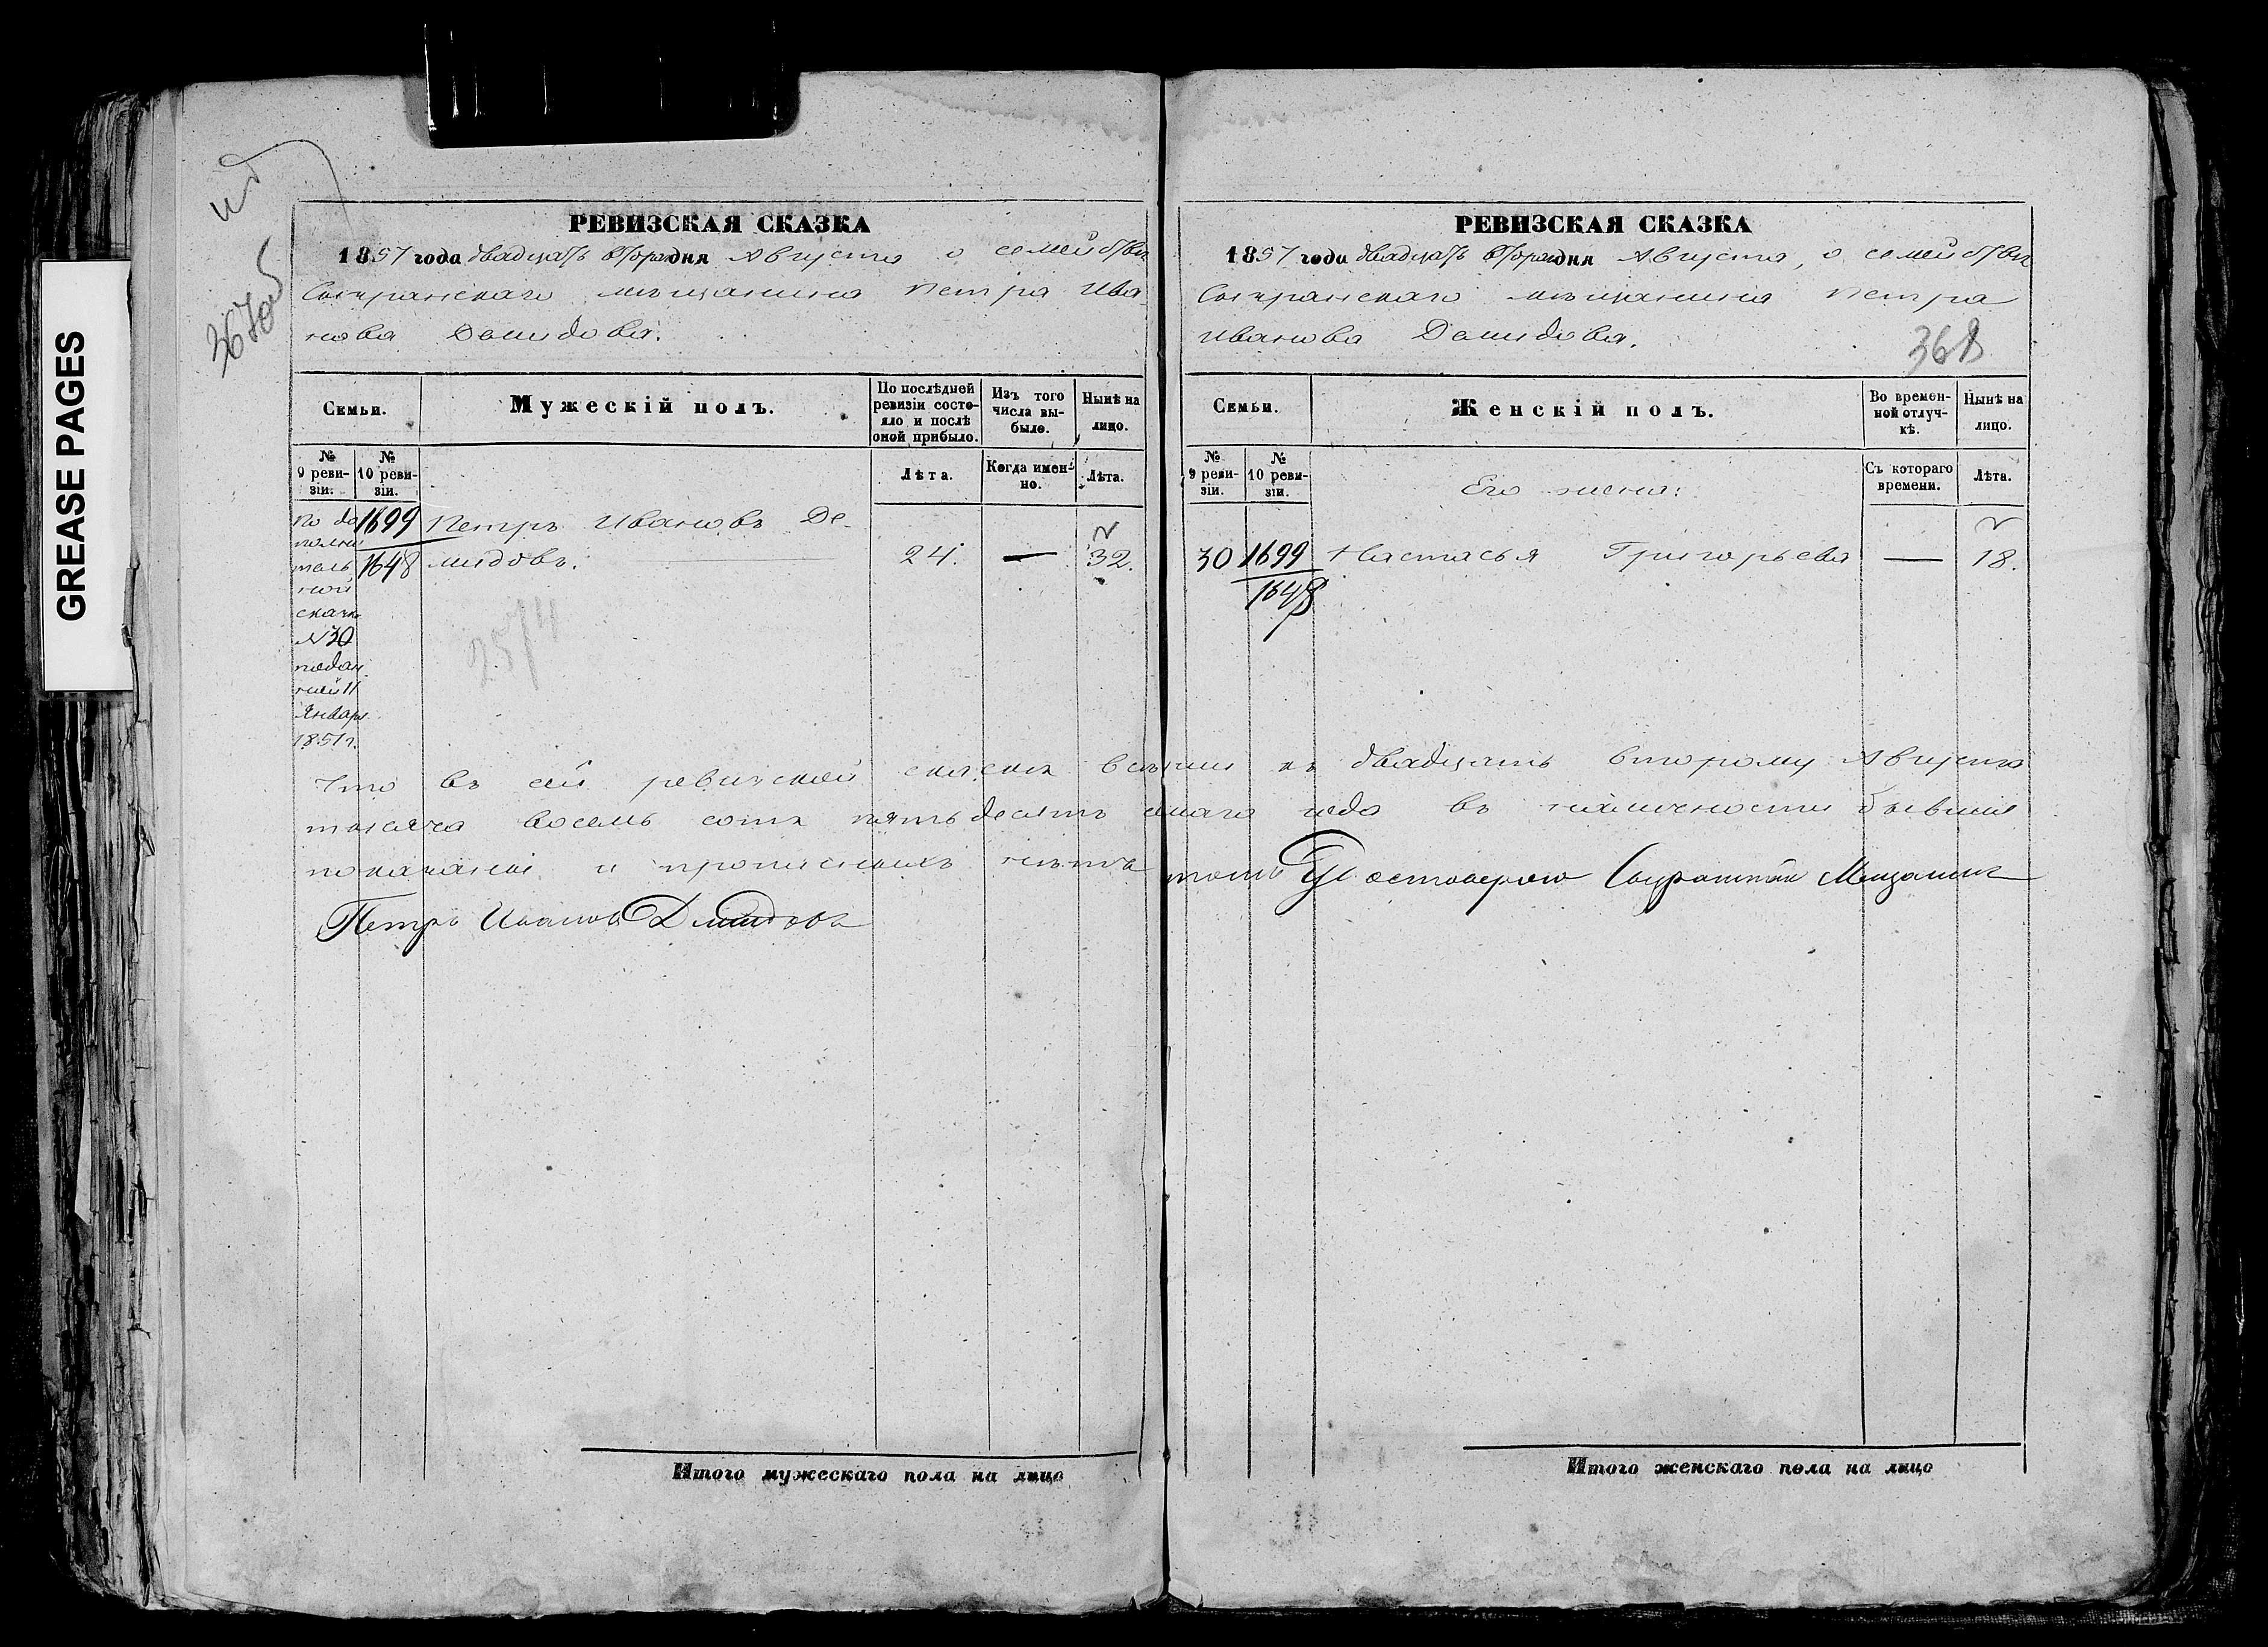 GREASE PAGES
367об
РЕВИЗСКАЯ СКАЗКА
1857 года двадцать втораго дня Августа о семействѣ
Сызранскаго мѣщанина Петра Ива
нова Демидова.
Семьи.
Мужескій полъ.
По послѣдней ревизіи состояло и послѣ оной прибыло.
Изъ того числа выбыло.
Нынѣ на лицо.
№ 9 ревизіи.
№ 10 ревизіи.
Лѣта.
Когда именно.
Лѣта.
По до
полни
тель
ной
сказкѣ
№30
подан
ной 11
Января
1851г.
1699
1648
Петръ Ивановъ Де-
мидовъ.
24.
—
32.
2574
РЕВИЗСКАЯ СКАЗКА
1857 года двадцать втораго дня Августа, о семействѣ
Сызранскаго мѣщанина Петра
Иванова Демидова.
368
Семьи.
Женскій полъ.
Во временной отлучкѣ.
Нынѣ на лицо.
№ 9 ревизіи.
№ 10 ревизіи.
Съ котораго времени.
Лѣта.
Его жена:
30
1699
1648
Настасья Григорьева
—
18.
Что въ сей ревизской сказкѣ всѣ къ двадцать второму Августа
тысяча восемь сотъ пятьдесятъ года въ наличности бывшія
показаны и прописныхъ нѣтъ Сызранскій Мещанинъ
Петръ Ивановъ Демидовъ
Итого мужескаго пола на лицо
Итого женскаго пола на лицо